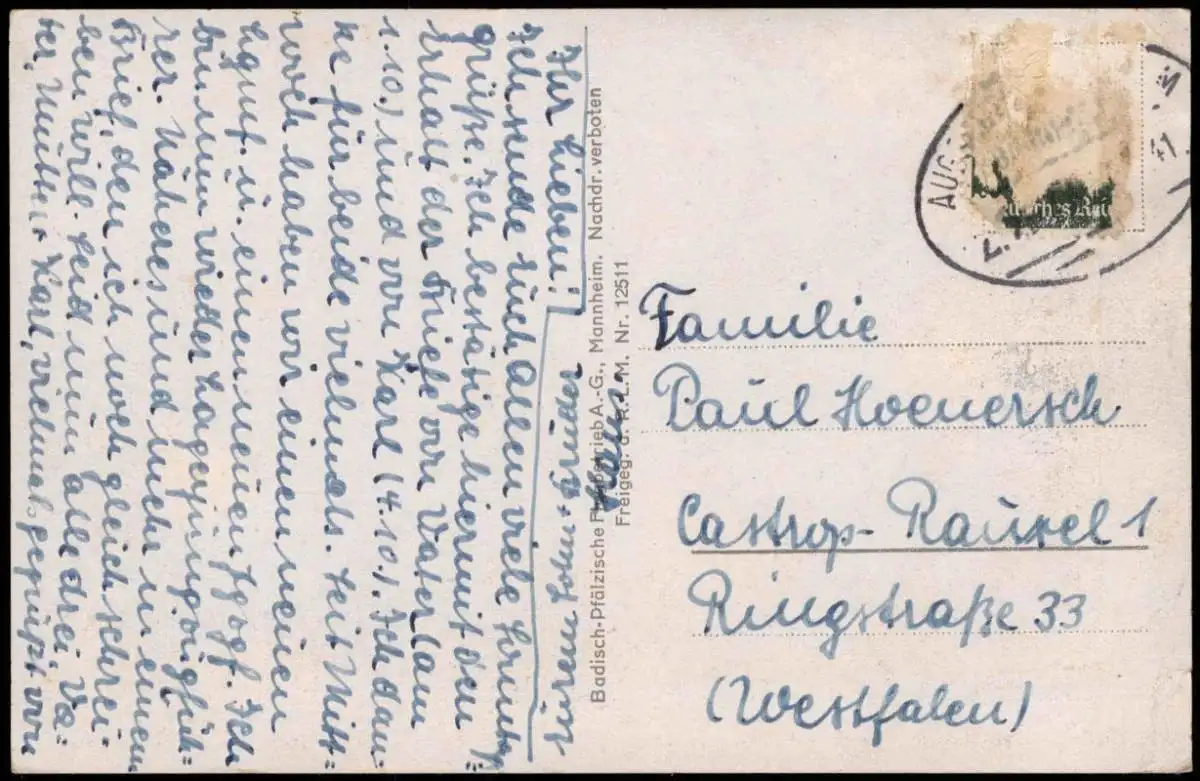 Ihr Lieben!
Ich sende Euch allen viele Sonntags-
grüße. Ich bestätige hiermit den
Erhalt der Briefe von Vater (am
1.10.) und von Karl (4.10.). Ich dan=
ke für beide vielmals. Seit Mitt=
woch haben wir einen neuen
u. einen neuen Ich
bin nun wieder
rer. Näheres und mehr in einem
Brief, den ich noch gleich schrei=
ben will. Seid nun alle drei, Va=
ter, Mutter + Karl, vielmals gegrüßt von
Eurem Sohn + Bruder
Badisch-Pfälzische Flugbetrieb A.-G., Mannheim. Nachdr. verboten
Freigeg. d. R.L.M. Nr. 12511
Deutsches Rei
41
Familie
Paul Hoenersch
Castrop-Rauxel 1
Ringstraße 33
(Westfalen)